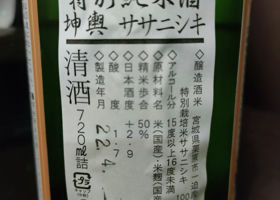 特別純米酒
坤輿 ササニシキ
◇醸造酒米 宮城県栗原市一迫
特別栽培米ササニシキ 100
◇アルコール分 15度以上16度未満
◇原材料名 米(国産)・米麹(国産
◇精米歩合 50%
◇日本酒度 +2.9
◇酸度 1.7
◇製造年月 22.4.
清酒 720㎖詰